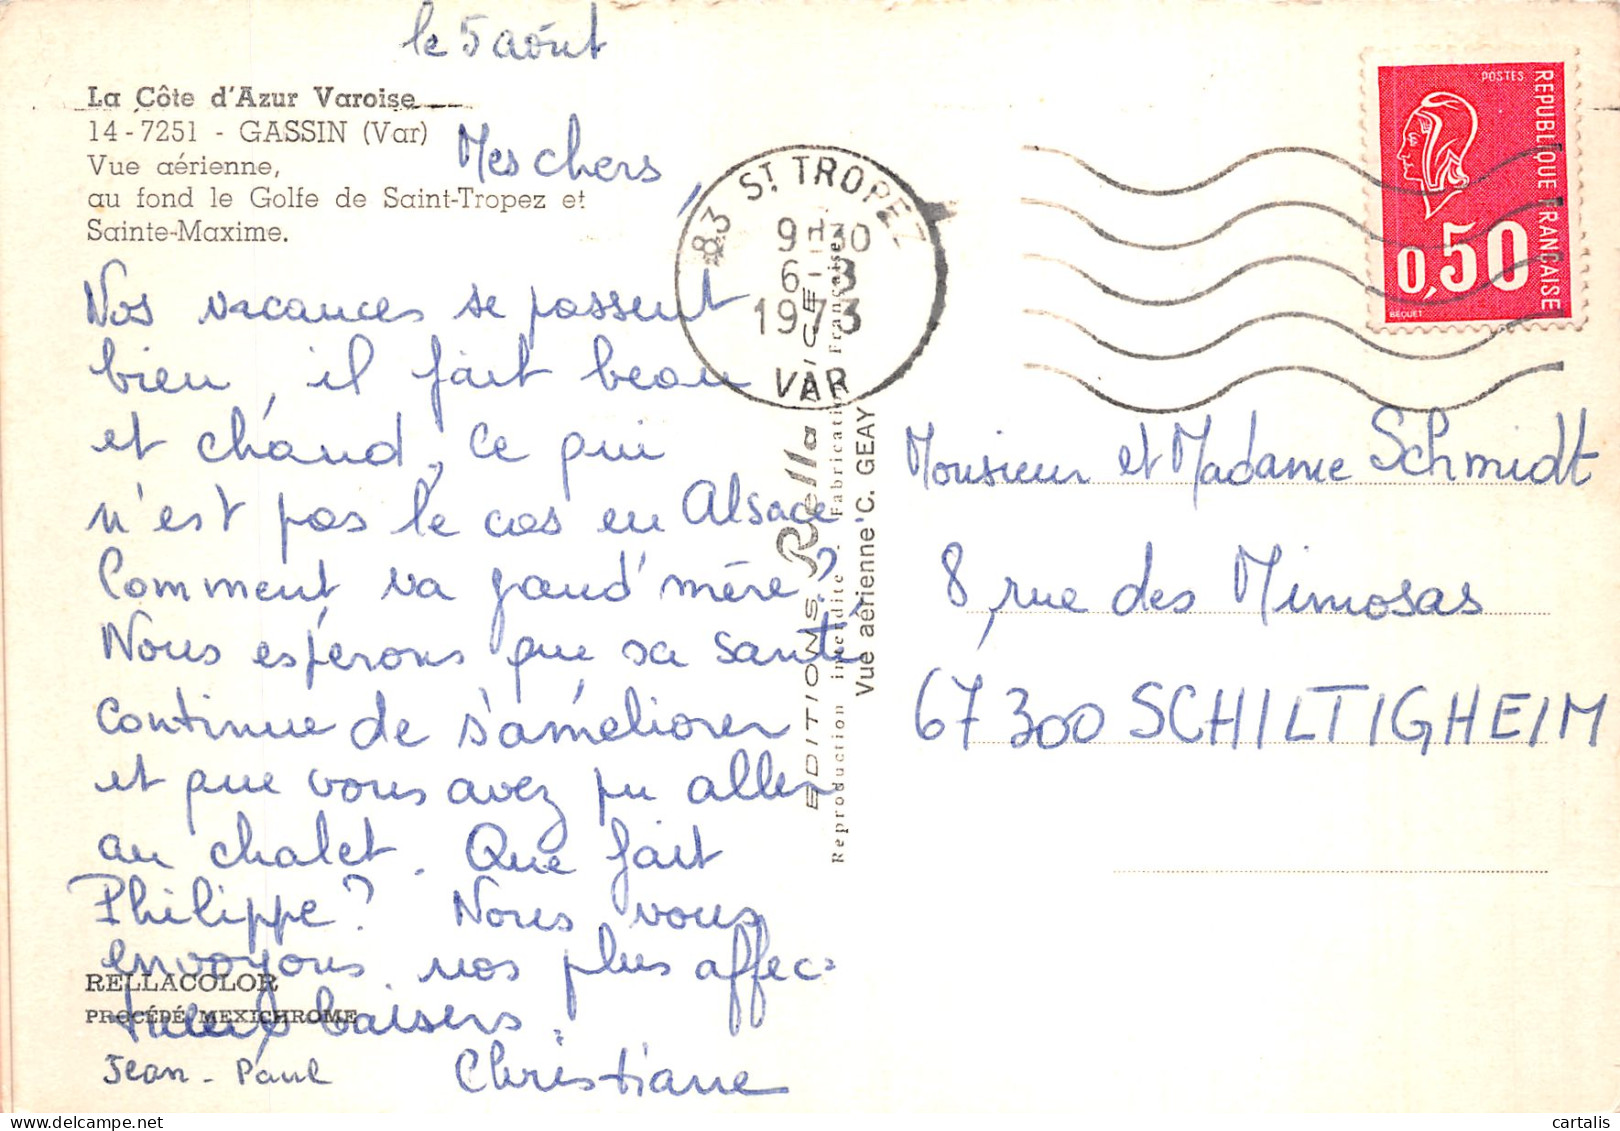 le 5 août
La Côte d'Azur Varoise
14-7251 - GASSIN (Var)
Vue aérienne,
au fond le Golfe de Saint-Tropez et
Sainte-Maxime.
Mes chers,
Nos vacances se passent
bien, il fait beau
et chaud, ce qui
n'est pas le cas en Alsace
Comment va grand'mère?
Nous espérons que sa santé
continue de s'améliorer
et que vous avez pu aller
au chalet. Que fait
Philippe? Nous vous
envoyons nos plus affec-
tueux baisers.
Jean-Paul Christiane
RELLACOLOR
PROCÉDÉ MEXICHROME
83 ST TROPEZ
9H30
6-8
1973
VAR
EDITIONS Rella NICE
Reproduction interdite. Fabrication Française
Vue aérienne C. GEAY
POSTES
REPUBLIQUE FRANÇAISE
0,50
BEQUET
Monsieur et Madame Schmidt
8, rue des Mimosas
67300 SCHILTIGHEIM
cartalis
delcampe.net